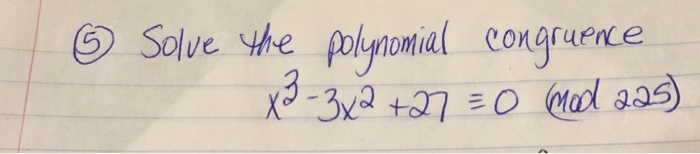 ⑤ Solve the polynomial congruence
x³-3x²+27 ≡ 0 (mod 225)